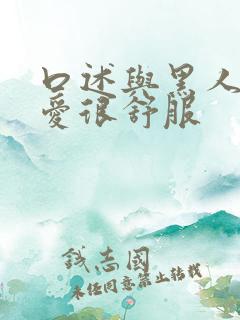 口述與黑人
愛很舒服
錢志國
未经同意禁止转载